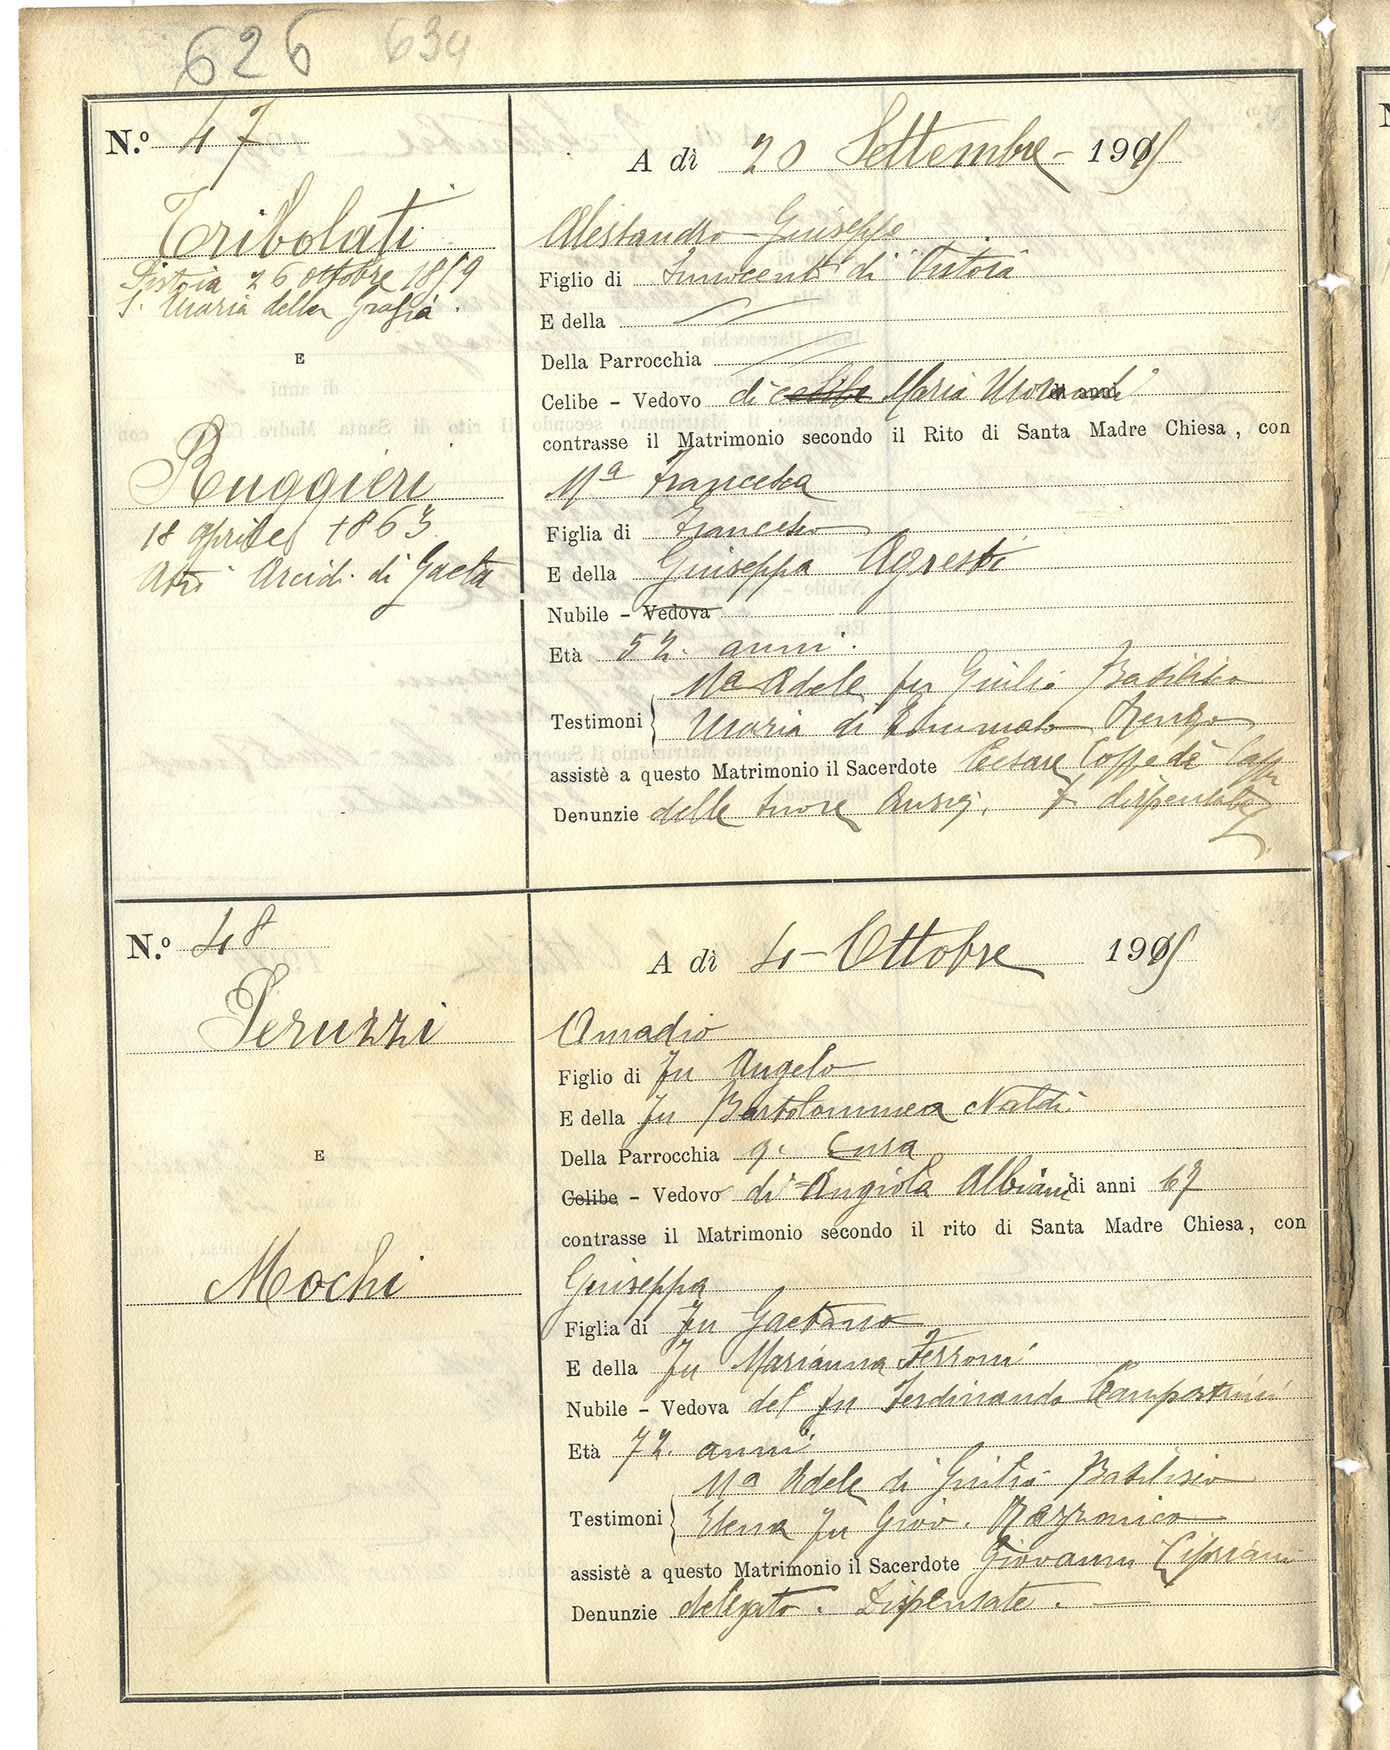 626 634
N.º 47
A dì 20 Settembre - 1915
Tribolati
Alessandro Giuseppe
Pistoia 26 ottobre 1859
S. Maria delle Grazie
Figlio di Innocenti di Pistoia
E della
E
Della Parrocchia
Celibe - Vedovo di celibe Maria di anni
contrasse il Matrimonio secondo il Rito di Santa Madre Chiesa, con
Ruggieri
Mª Francesca
18 aprile 1863
Figlia di Francesco
Arcid. di Gaeta
E della Giuseppa Agresti
Nubile - Vedova
Età 52. anni.
Mª Adele fu Giulio Basilisco
Testimoni Maria di Renzo
assistè a questo Matrimonio il Sacerdote Cesare Capp.
Denunzie delle Suore dispensate
N.º 48
A dì 4 - Ottobre 1915
Peruzzi
Amadio
Figlio di fu Angelo
E della fu Bartolommea Naldi
E
Della Parrocchia q. Cura
Celibe - Vedovo di Angiola Albiani di anni 67
contrasse il Matrimonio secondo il rito di Santa Madre Chiesa, con
Mochi
Giuseppa
Figlia di fu Gaetano
E della fu Marianna Ferroni
Nubile - Vedova del fu Ferdinando
Età 72. anni
Mª Adele di Giulio Basilisco
Testimoni Elena fu Giov. Razzonico
assistè a questo Matrimonio il Sacerdote Giovanni Cipriani
Denunzie delegato. Dispensate.